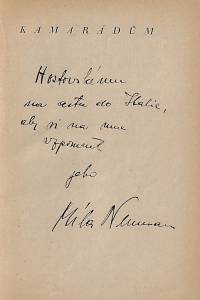 KAMARÁDŮM
Hostovskému
na cestu do Italie,
aby si na mne
vzpomněl
jeho
Miloš Neuman